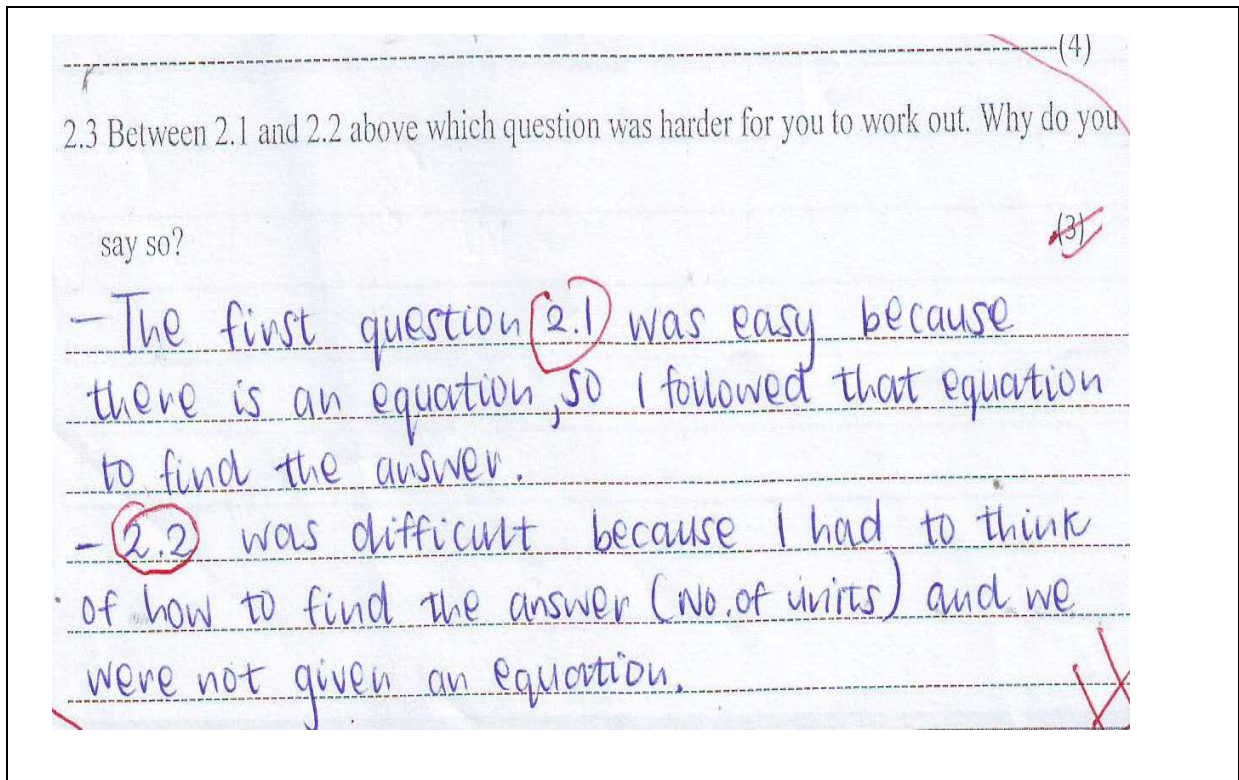 (4)
2.3 Between 2.1 and 2.2 above which question was harder for you to work out. Why do you
say so?
(3)
- The first question 2.1 was easy because
there is an equation, so I followed that equation
to find the answer.
- 2.2 was difficult because I had to think
of how to find the answer (No. of units) and we
were not given an equation.